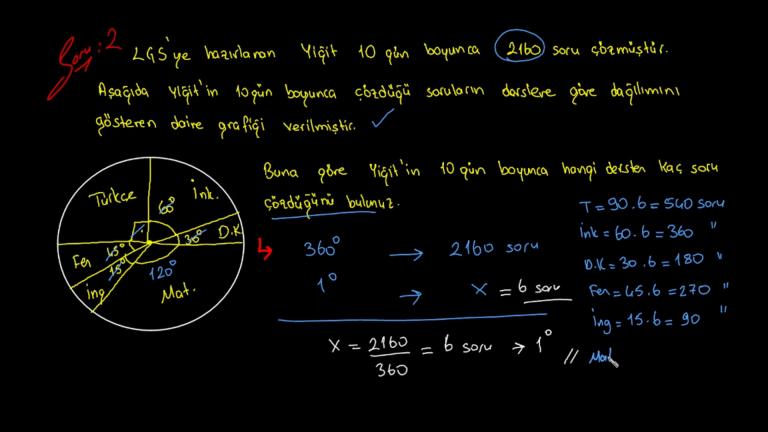 Soru: 2
LGS'ye hazırlanan Yiğit 10 gün boyunca 2160 soru çözmüştür.
Aşağıda Yiğit'in 10 gün boyunca çözdüğü soruların derslere göre dağılımını
gösteren daire grafiği verilmiştir.
Buna göre Yiğit'in 10 gün boyunca hangi dersten kaç soru
çözdüğünü bulunuz.
Türkçe
İnk.
60°
D.K
30°
Fen
45°
15°
ing
120°
Mat.
360° → 2160 soru
1° → x = 6 soru
x = 2160/360 = 6 soru → 1° //
T = 90.6 = 540 soru
ink = 60.6 = 360 "
D.K = 30.6 = 180 "
Fen = 45.6 = 270 "
ing = 15.6 = 90 "
Mat